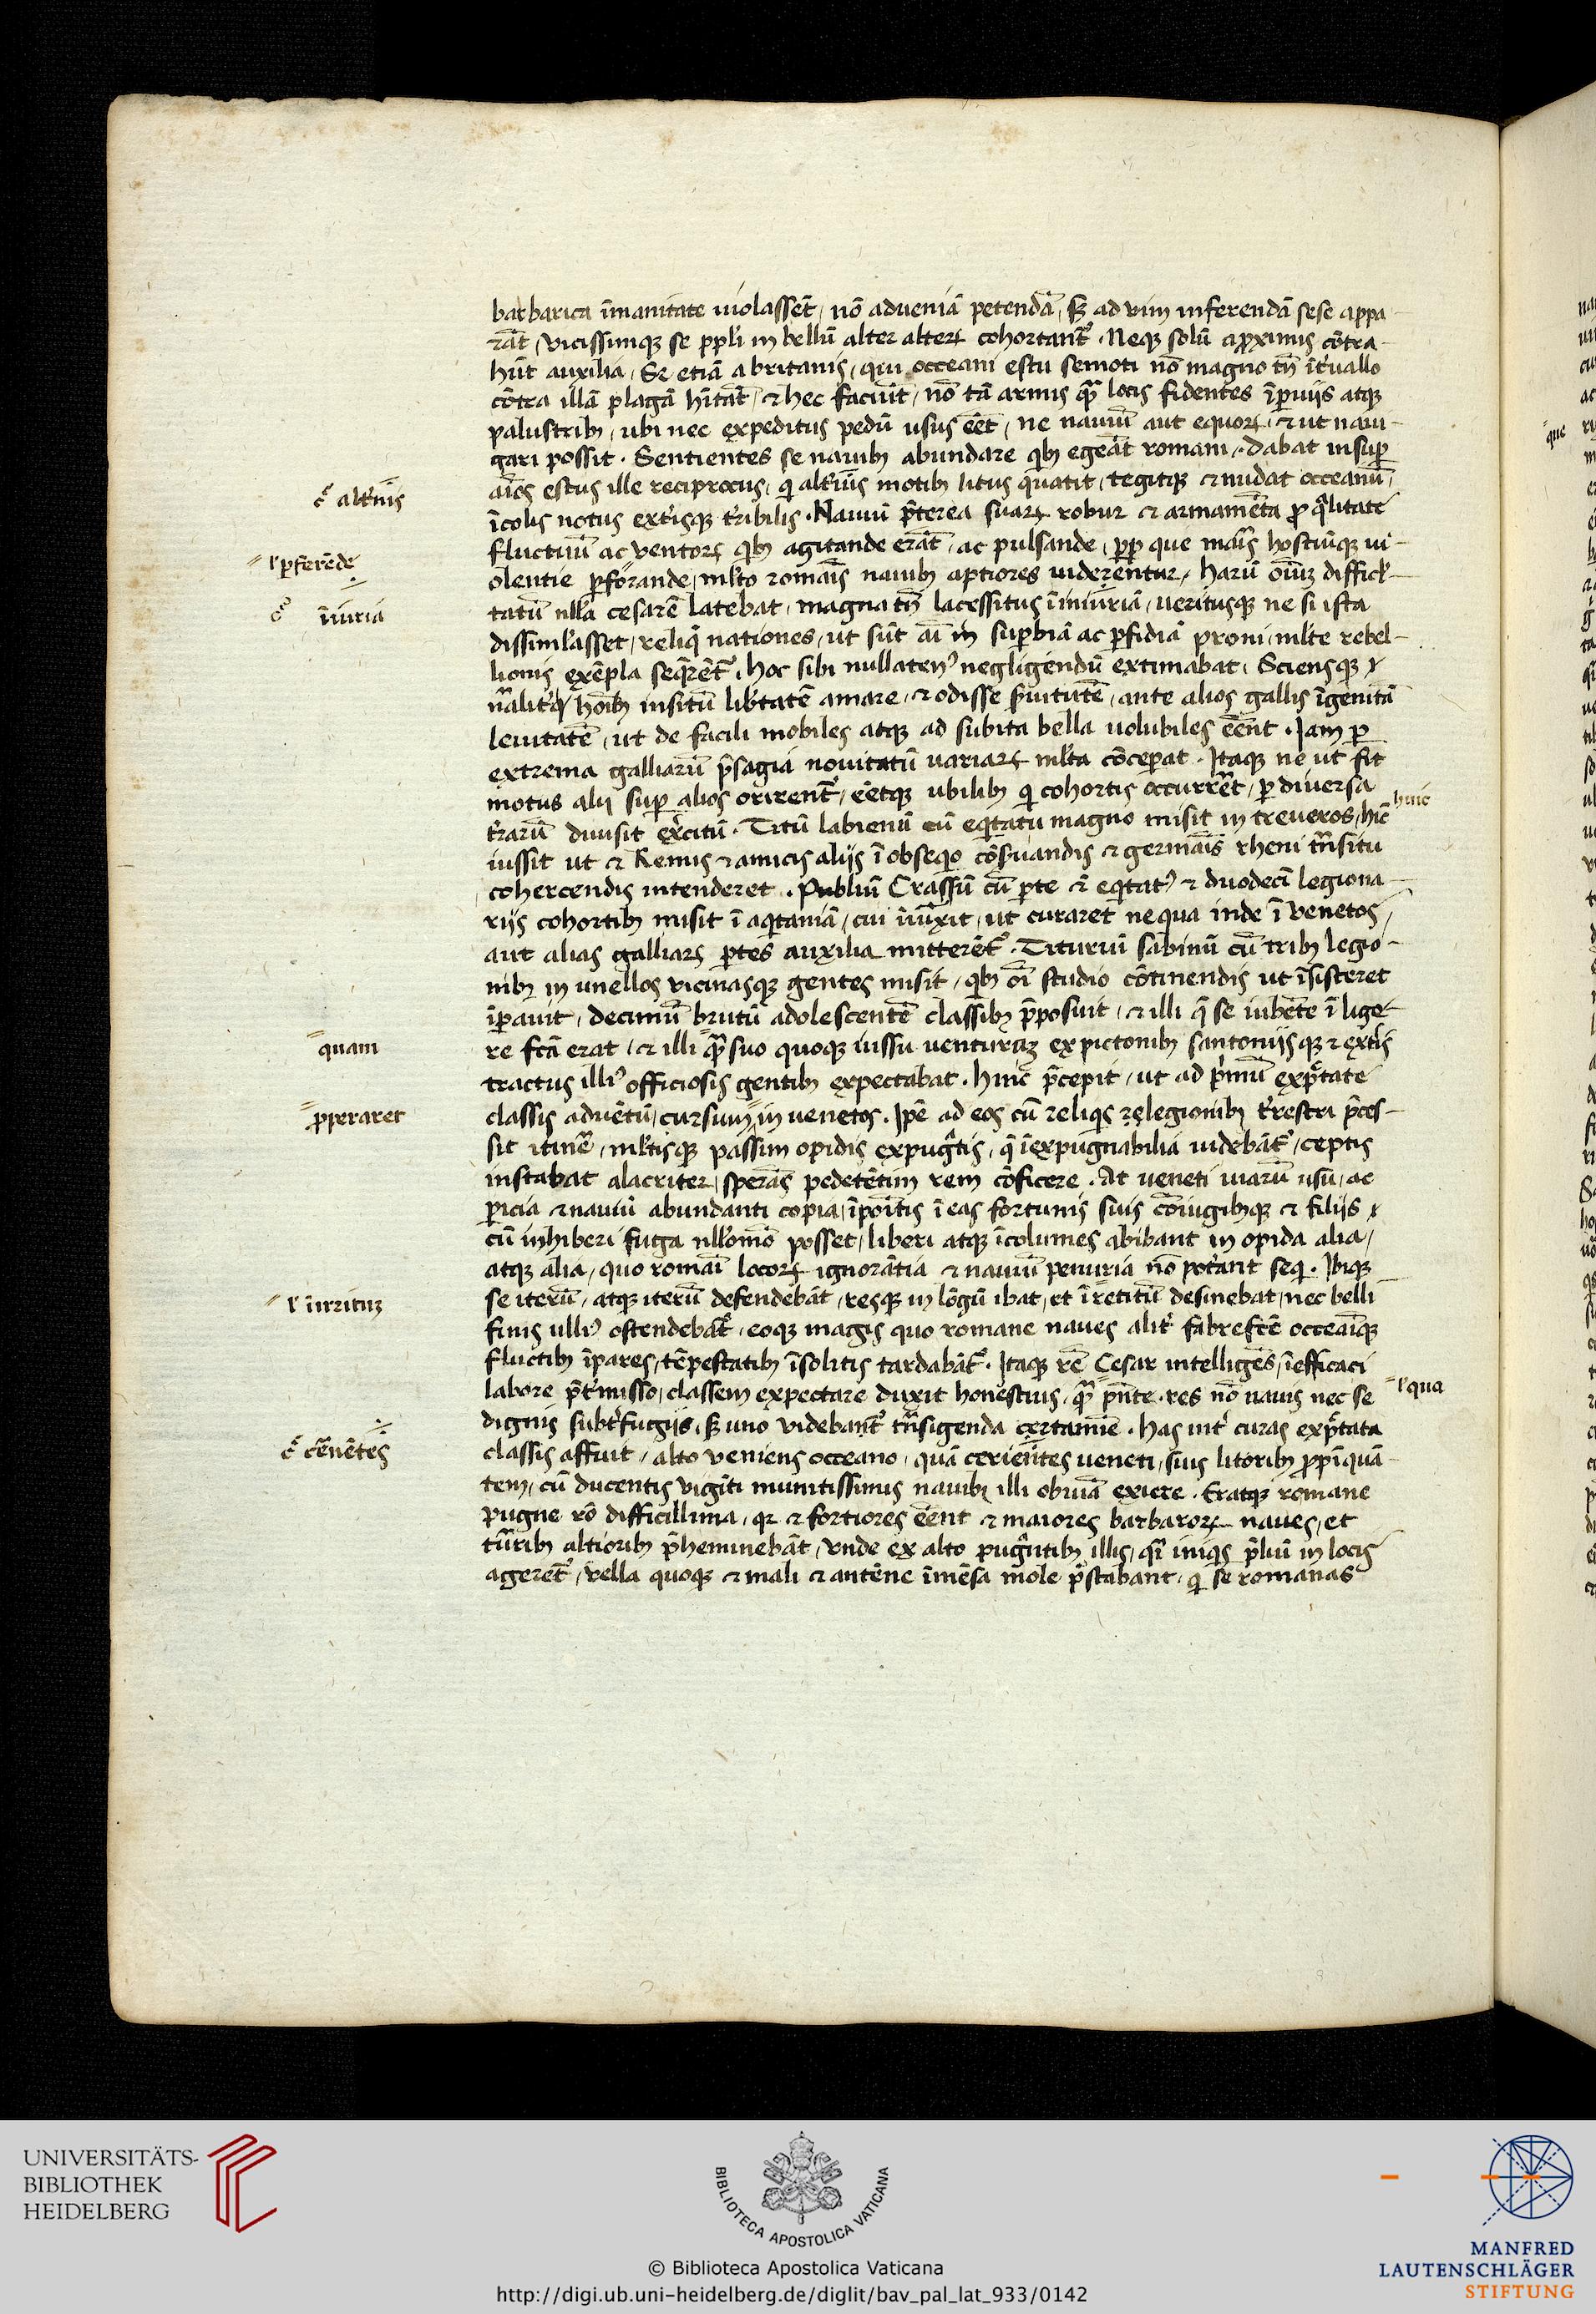 barbarica īmanitate uiolassēt / nō adueniā petendā / sꝫ ad vim inferendā sese appa-
rāt / vicissimqꝫ se ppl'i in bellū alter alterꝝ cohortant᷑ . Neqꝫ solū a ꝓximis cōtra-
hūt auxilia / Sꝫ etiā a britanis / qui occeani estu semoti nō magno tn̄ īt'uallo
cōtra illā plagā hītāt / ⁊ hec faciūt / nō tā armis qꝫ locis fidentes īꝑuijs atqꝫ
palustribꝫ / ubi nec expeditus pedū usus eēt / ne nauiū aut equoꝝ / ⁊ ut naui-
gari possit . Sentientes se nauibꝫ abundare qbꝫ egeāt romani . dabat insuꝑ
aīos estus ille reciprocus / qi alt'ius motibꝫ litus quatit / tegitqꝫ ⁊ nudat occeanū /
c̄ alt'nis
īcolis notus ext'isqꝫ t'ribilis . Nauiū p̄terea suaꝝ robur ⁊ armamēta ꝓ qlitate
fluctuū ac ventoꝝ qbꝫ agitande erāt / ac pulsande / ꝓp que maīs hostiūqꝫ ui-
l' ꝑferēde
olentie ꝑforande / ml'to romaīs nauibꝫ aptiores uiderentur / harū oīuꝫ difficl'-
c̄ īiuria
tatū nll'a cesarē latebat / magna tn̄ lacessitus īiniuriā / ueritusqꝫ ne si ista
dissiml'asset / reliq̄ nationes / ut sūt aī in suꝑbiā ac ꝑfidiā proni / ml'te rebel-
lionis exēpla seq̄rēt᷑ . hoc sibi nullaten⁹ negligendū extimabat . Sciensqꝫ
nālit'qꝫ hoībꝫ insitū lib'tatē amare / ⁊ odisse s'uitutē / ante alios gallis īgenitā
leuitatē / ut de facili mobiles atqꝫ ad subita bella uolubiles eēnt . Jam ꝑ
extrema galliarū p̄sagia nouitatū uariaꝝ ml'ta cōceꝑat . Itaqꝫ ne ut fit
motus alij suꝑ alios orirent᷑ / eētqꝫ ubilibꝫ qi cohortis occurrēt / ꝑ diuersa
hinc
t'rarū diuisit ex'citū . Titū labienū cū eqitatu magno misit in treueros / hīc
iussit ut ⁊ Remis ⁊ amicis alijs ī obseqo cōs'uandis ⁊ germaīs rheni tn̄situ
cohercendis intenderet . Publiū Crassū cū ꝑte ⁊ eqitat⁹ ⁊ duodecī legiona-
rijs cohortibꝫ misit ī aqitaniā / cui iīuxit / ut curaret ne qua inde ī venetos /
aut alias galliaꝝ ꝑtes auxilia mitterēt᷑ . Tituriū sabinū cū tribꝫ legio-
nibꝫ in unellos vicinasqꝫ gentes misit / qbꝫ oī studio cōtinendis ut īsisteret
īꝑauit / decimū brutū adolescentē classibꝫ p̄posuit / ⁊ illi q̄ se iubēte ī lige-
quam
re fcā erat / ⁊ illi qꝫ suo quoqꝫ iussu venturaꝫ ex pictonibꝫ santonijsqꝫ ⁊ ext'is
tractus illi⁹ officiosis gentibꝫ expectabat . hinc p̄cepit / ut ad p'mū exp̄tate
ꝓperaret
classis aduētū / cursum in uenetos . Ipē ad eos cū reliqis legionibꝫ t'restri p̄ces-
sit itinē / ml'tisqꝫ passim opidis expugtis / q̄ īexpugnabilia uidebāt᷑ / ceptis
instabat alacriter / sperās pedetētim rem cōficere . At ueneti uiarū usu / ac
ꝑicia ⁊ nauiū abundanti copia / īpoītis ī eas fortunis suis cōiugibqꝫ ⁊ filijs
cū inhiberi fuga nll'omō posset / liberi atqꝫ īcolumes abibant in opida alia /
atqꝫ alia / quo romaī locoꝝ ignorātia ⁊ nauiū penuria nō pot'ant seqi . Ibiqꝫ
l' īrrituꝫ
se iterū / atqꝫ iterū defendebāt / resqꝫ in lōgū ibat / et īretitū desinebat / nec belli
finis ulli⁹ ostendebāt᷑ / eoqꝫ magis quo romane naues alit' fabrefcē occeaīqꝫ
fluctibꝫ īpares / tēpestatibꝫ īsolitis tardabāt᷑ . Itaqꝫ rē Cesar intelligēs / īefficaci
labore p̄t'misso / classem expectare duxit honestius / qꝫ pn̄te . res nō nauis nec se
l' qua
dignis subt'fugijs / sꝫ uno videbant᷑ tn̄sigenda certamīe . has int' curas exp̄tata
c̄ cernētes
classis affuit / alto veniens occeano / quā cerientes ueneti / suis litoribꝫ ꝓpīquā-
tem / cū ducentis vigīti munitissimis nauibꝫ illi obuiā exiere . Eratqꝫ romane
pugne rō difficillima / qꝛ ⁊ fortiores eēnt ⁊ maiores barbaroꝝ naues / et
turribꝫ altioribꝫ p̄heminebāt / vnde ex alto pugntibꝫ illis / qi iniqis p̄liū in locis
ageret᷑ / vella quoqꝫ ⁊ mali ⁊ antēne īmēsa mole p̄stabant / qi se romanas
que
UNIVERSITÄTS-
BIBLIOTHEK
HEIDELBERG
BIBLIOTECA APOSTOLICA VATICANA
© Biblioteca Apostolica Vaticana
http://digi.ub.uni-heidelberg.de/diglit/bav_pal_lat_933/0142
MANFRED
LAUTENSCHLÄGER
STIFTUNG